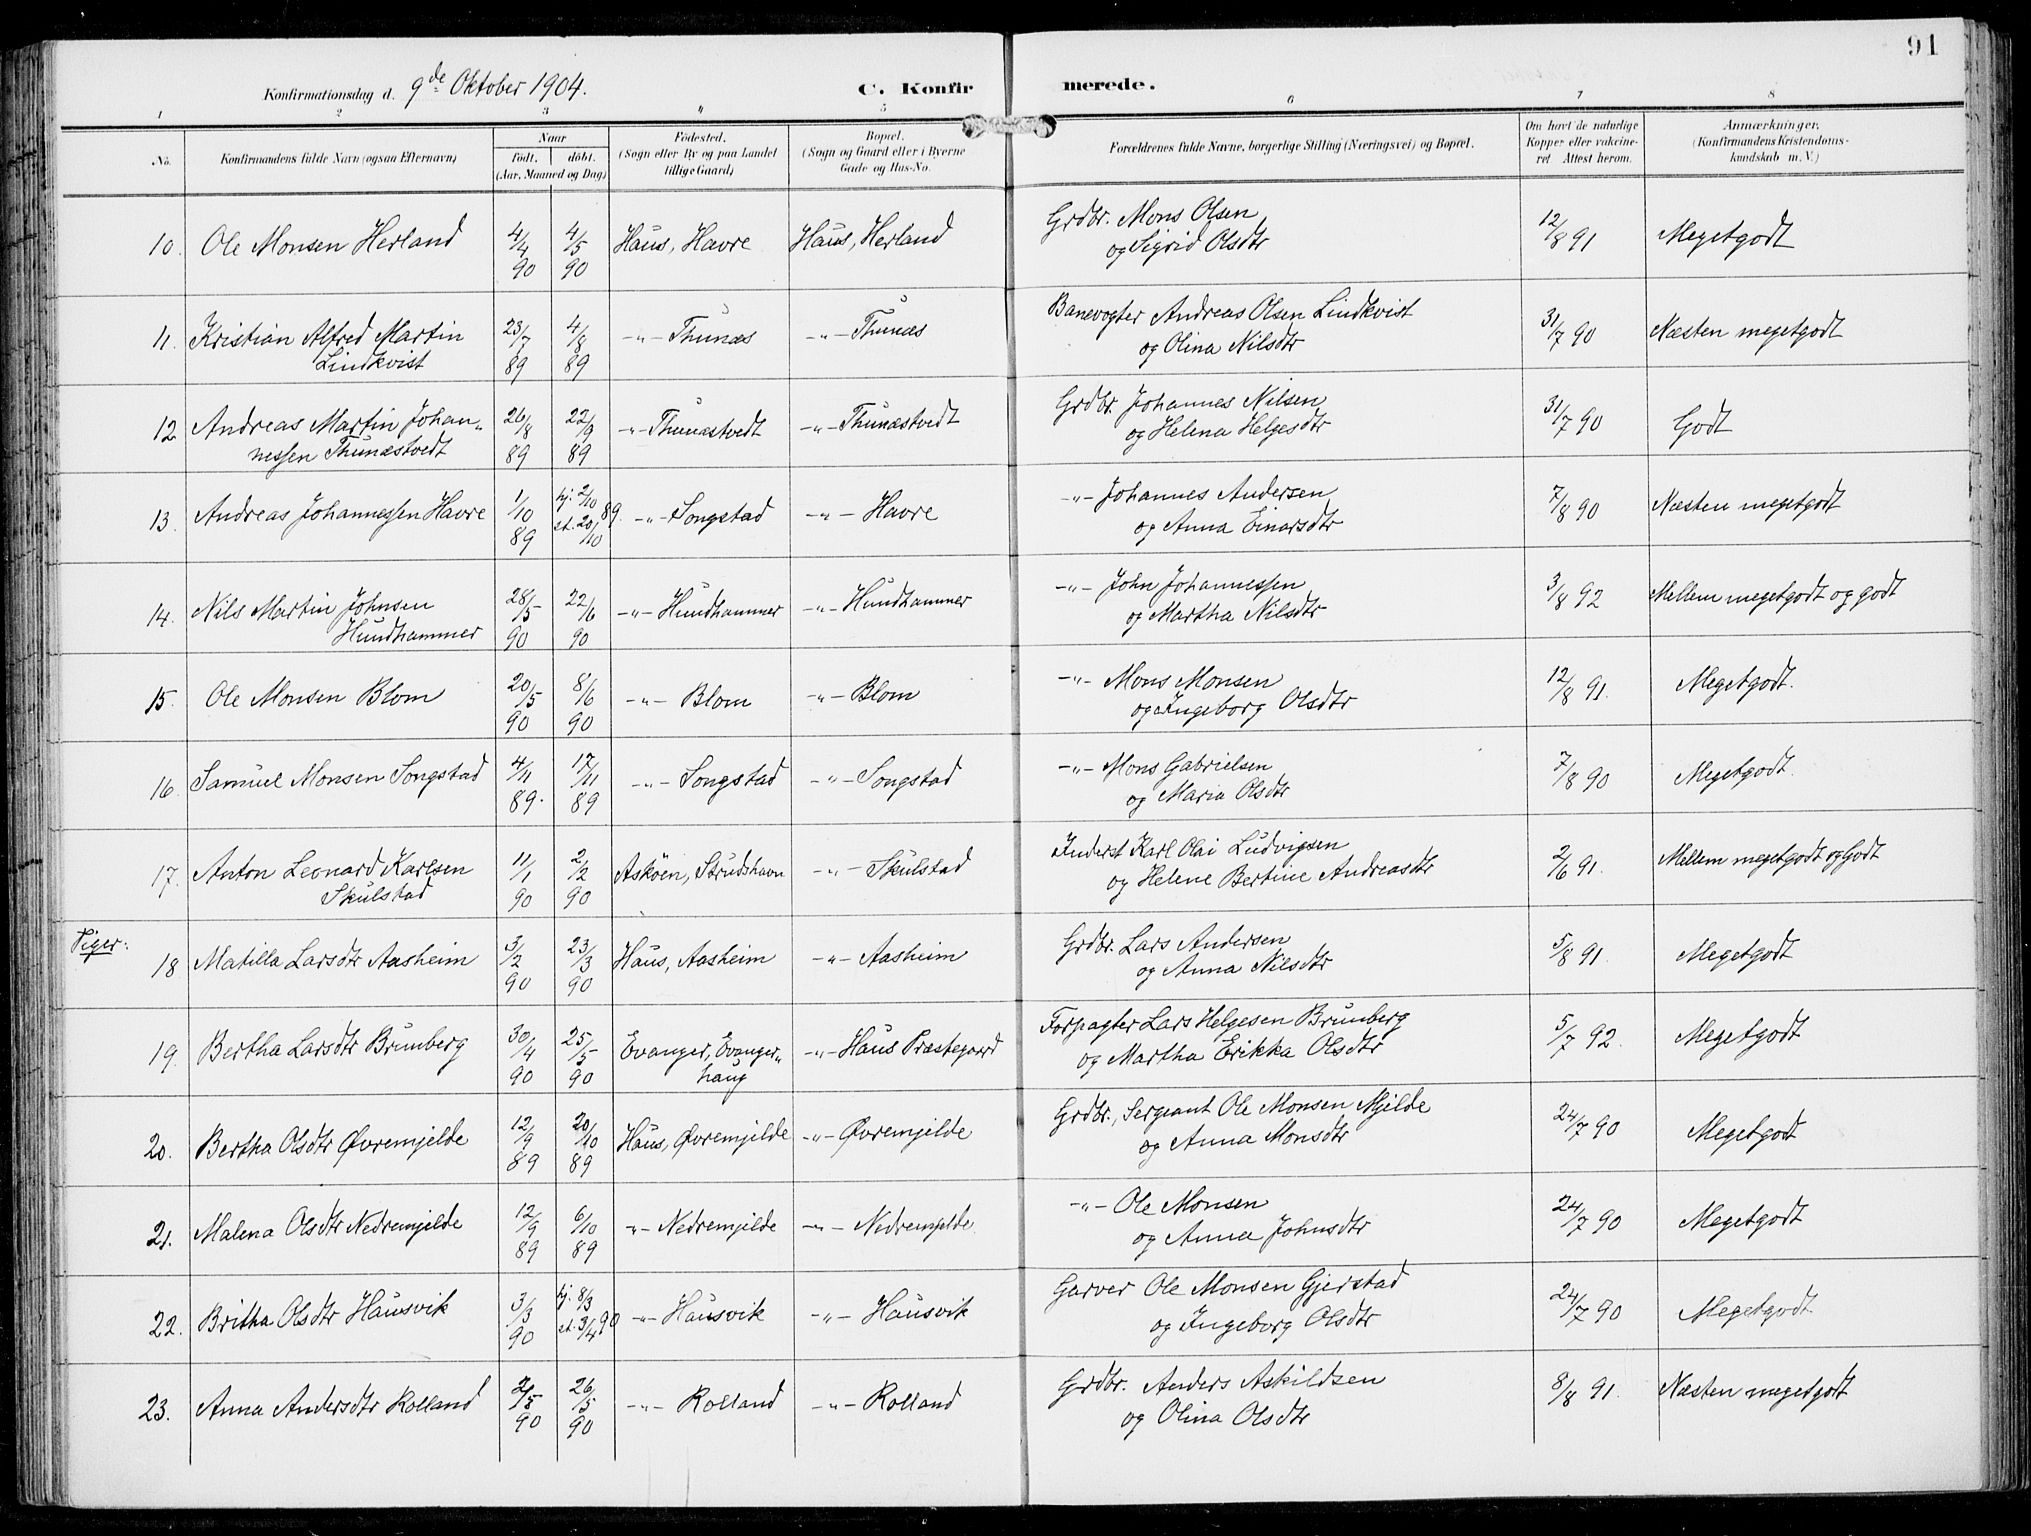 91
Konfirmationsdag d. 9de Oktober 1904.
C. Konfirmerede.
1 2 3 4 5 6 7 8
No.
Konfirmandens fulde Navn (ogsaa Efternavn)
Naar
födt. döbt.
(Aar, Maaned og Dag)
Födested.
(Sogn eller By og paa Landet
tillige Gaard)
Bopæl.
(Sogn og Gaard eller i Byerne
Gade og Hus-No.
Forældrenes fulde Navne, borgerlige Stilling (Næringsvei) og Bopæl.
Om havt de naturlige
Kopper eller vakcine-
ret. Attest herom.
Anmærkninger.
(Konfirmandens Kristendoms-
kundskab m. V.)
10. Ole Monsen Herland 4/4 90 4/5 90 Haus, Havre Haus, Herland Grdbr. Mons Olsen 12/8 91 Megetgodt
og Sigrid Olsdtr
11. Kristian Alfred Martin 23/7 89 4/8 89 -"- Thunæs -"- Thunæs Banevogter Andreas Olsen Lindkvist 31/7 90 Næsten megetgodt
Lindkvist og Olina Nilsdtr
12 Andreas Martin Johan- 26/8 89 22/9 89 -"- Thunæstvedt -"- Thunæstvedt Grdbr. Johannes Nilsen 31/7 90 Godt
nessen Thunæstvedt og Helena Helgesdtr
13. Andreas Johannessen Havre 1/10 89 hj. 2/10 89 st. 20/10 -"- Songstad -"- Havre -"- Johannes Andersen 7/8 90 Næsten megetgodt
og Anna Einarsdtr
14. Nils Martin Johnsen 28/5 90 22/6 90 -"- Hundhammer -"- Hundhammer -"- John Johannessen 3/8 92 Mellem megetgodt og godt
Hundhammer og Martha Nilsdtr
15. Ole Monsen Blom 20/5 90 8/6 90 -"- Blom -"- Blom -"- Mons Monsen 12/8 91. Megetgodt.
og Ingeborg Olsdtr
16. Samuel Monsen Songstad 4/11 89. 17/11 89 -"- Songstad -"- Songstad -"- Mons Gabrielsen 7/8 90 Megetgodt.
og Maria Olsdtr
17. Anton Leonard Karlsen 11/1 90 2/2 90 Askøen, Strudshavn -"- Skulstad Inderst Karl Olai Ludvigsen 2/6 91. Mellem megetgodt og Godt
Skulstad og Helene Bertine Andreasdtr
Piger:
18 Matilla Larsdtr Aasheim 3/2 90 23/3 90 Haus, Aasheim -"- Aasheim Grdbr. Lars Andersen 5/8 91. Megetgodt
og Anna Nilsdtr
19. Bertha Larsdtr Brunberg 30/4 90 25/5 90 Evanger, Evanger- -"- Haus Præstegaard Forpagter Lars Helgesen Brunberg 5/7 92. Megetgodt
haug og Martha Erikka Olsdtr
20. Bertha Olsdtr Øvremjelde 12/9 89 20/10 89 Haus, Øvremjelde -"- Øvremjelde Grdbr., Sergeant Ole Monsen Mjelde 24/7 90 Megetgodt
og Anna Monsdtr
21. Malena Olsdtr Nedremjelde 12/9 89 6/10 89 -"- Nedremjelde -"- Nedremjelde -"- Ole Monsen 24/7 90 Megetgodt
og Anna Johnsdtr
22. Britha Olsdtr Hausvik 3/3 90 hj. 8/3 st. 3/4 90 -"- Hausvik -"- Hausvik Garver Ole Monsen Gjerstad 24/7 90 Megetgodt
og Ingeborg Olsdtr
23. Anna Andersdtr Rolland 2/5 90 26/5 90 -"- Rolland -"- Rolland Grdbr. Anders Askildsen 8/8 91. Næsten megetgodt
og Olina Olsdtr